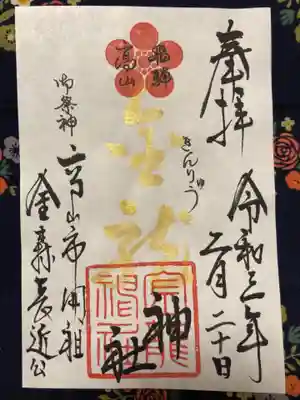 奉拝
令和三年
二月二十日
飛騨
高山
金龍
きんりゅう
神社
御祭神
高山市開祖
金森長近公